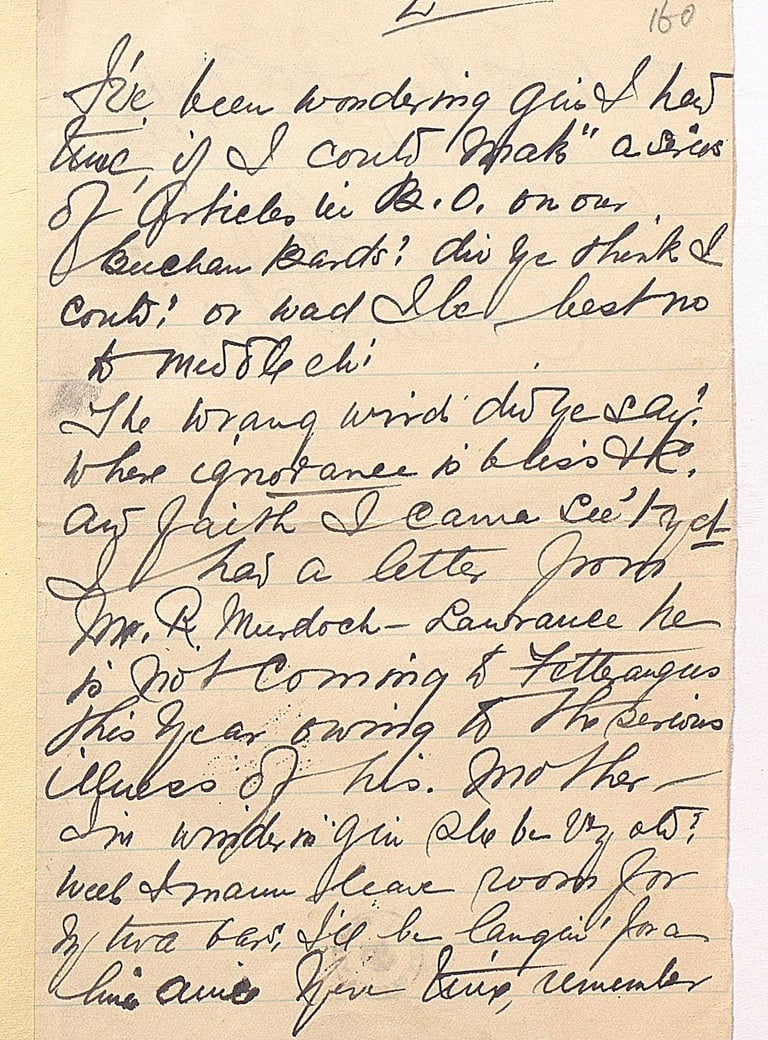 2
160
I've been wondering gin I had
time, if I could "mak" a series
of Articles in B.O. on our
Buchan Bards? div ye think I
could? or wad I be best no
to middle eh?
The wrang wird' div ye say?
where ignorance is bliss &c.
an faith I cam a lee't yet
I had a letter from
Mr. R. Murdoch-Lawrance he
is not coming to Fetterangus
this year owing to the serious
illness of his. Mother—
I'm winderin' gin she be very old?
weel I maun leave room for
my twa bars; I'll be langin' for a
line awie yer time, remember